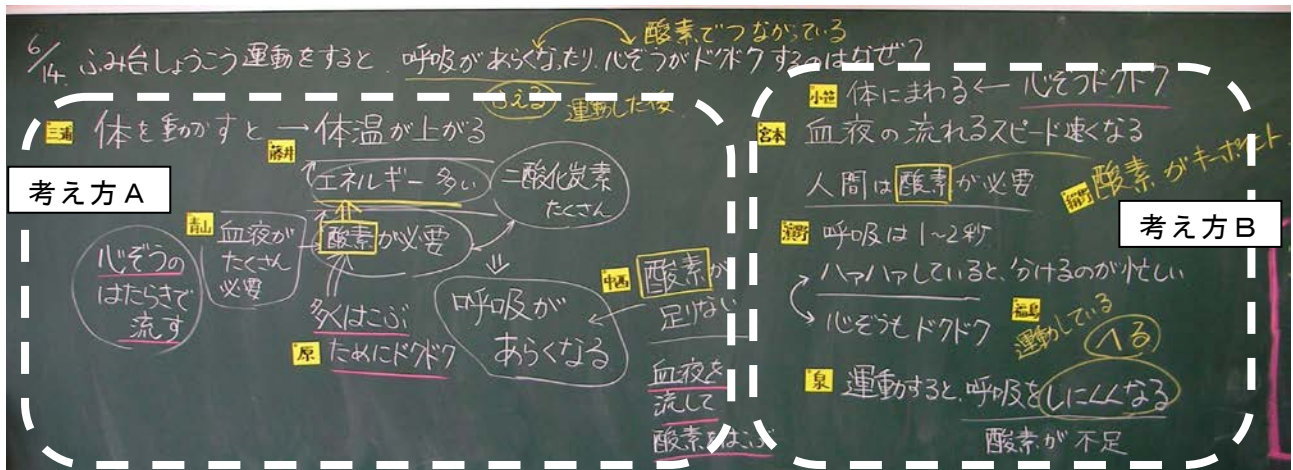 酸素でつながっている
6/14. ふみ台しょうこう運動をすると、呼吸があらくなったり、心ぞうがドクドクするのはなぜ?
ふえる 運動した後
考え方A
三浦 体を動かすと→体温が上がる
藤井
エネルギー多い
二酸化炭素
たくさん
青山 血液が
たくさん
必要
酸素が必要
心ぞうの
はたらきで
流す
多くはこぶ
原 ためにドクドク
呼吸が
あらくなる
中西 酸素が
足りない
血液を
流して
酸素をはこぶ
考え方B
小笹 体にまわる← 心ぞうドクドク
宮本 血液の流れるスピード速くなる
人間は酸素が必要
酸素がキーポイント
呼吸は1~2秒
ハァハァしていると、分けるのが忙しい
心ぞうもドクドク
福島
運動している
へる
泉 運動すると、呼吸をしにくくなる
酸素が不足